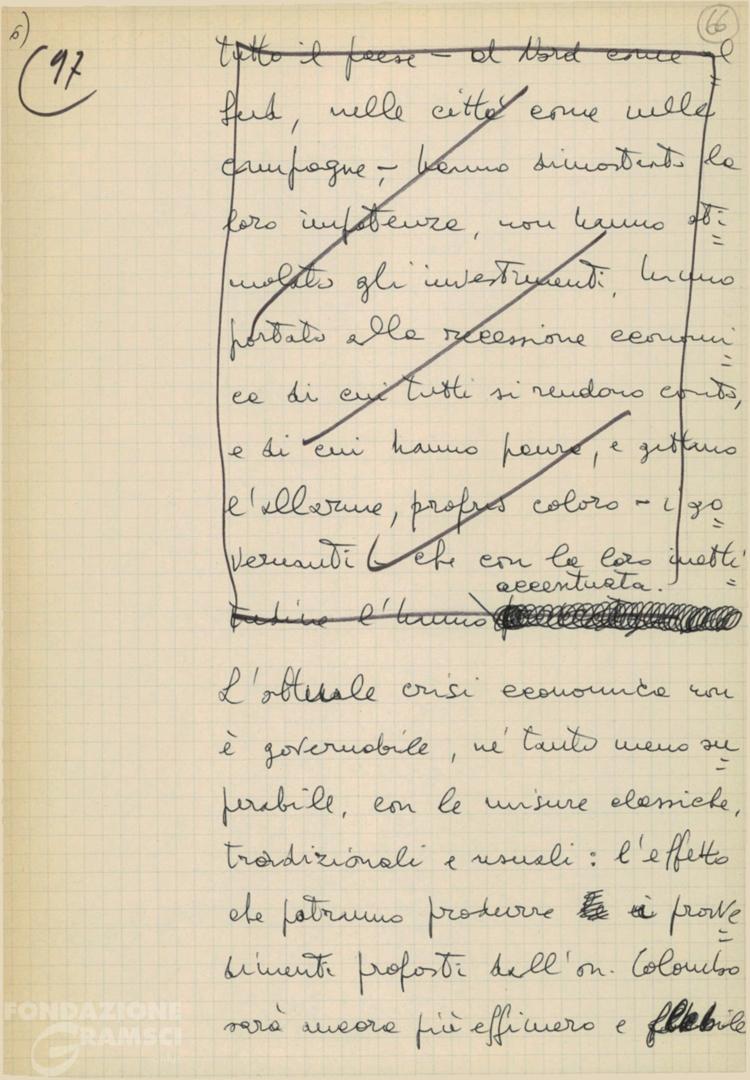 6)
97
66
tutto il paese – al Nord come al
Sud, nelle città come nelle
campagne – hanno dimostrato la
loro impotenza, non hanno sti=
molato gli investimenti, hanno
portato alla recessione economi=
ca di cui tutti si rendono conto,
e di cui hanno paura, e gettano
l'allarme, proprio coloro – i go=
vernanti – che con la loro inetti=
accentuata.
tudine l'hanno
L'attuale crisi economica non
è governabile, né tanto meno su=
perabile, con le misure classiche,
tradizionali e usuali: l'effetto
che potranno produrre i provve=
dimenti proposti dall'on. Colombo
sarà ancora più effimero e flebile
FONDAZIONE
GRAMSCI